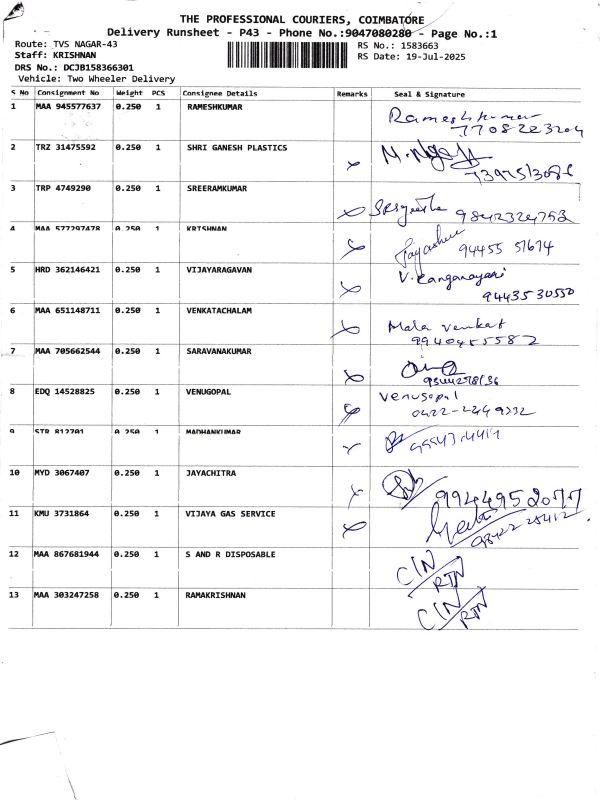 THE PROFESSIONAL COURIERS, COIMBATORE
Delivery Runsheet - P43 - Phone No.:9047080280 - Page No.:1
Route: TVS NAGAR-43
Staff: KRISHNAN
DRS No.: DCJB158366301
Vehicle: Two Wheeler Delivery
RS No.: 1583663
RS Date: 19-Jul-2025
S No Consignment No Weight PCS Consignee Details Remarks Seal & Signature
1 MAA 945577637 0.250 1 RAMESHKUMAR Rameshkumar
2 TRZ 31475592 0.250 1 SHRI GANESH PLASTICS
3 TRP 4749290 0.250 1 SREERAMKUMAR 9842324753
4 MAA 577297478 0.250 1 KRISHNAN 94455 51674
5 HRD 362146421 0.250 1 VIJAYARAGAVAN V. Ranganayari
9443530550
6 MAA 651148711 0.250 1 VENKATACHALAM Mala Venkat
9940455582
7 MAA 705662544 0.250 1 SARAVANAKUMAR
8 EDQ 14528825 0.250 1 VENUGOPAL Venugopal
0422-2249232
9 STR 812701 0.250 1 MADHANKUMAR
10 MYD 3067407 0.250 1 JAYACHITRA 9944952077
11 KMU 3731864 0.250 1 VIJAYA GAS SERVICE
12 MAA 867681944 0.250 1 S AND R DISPOSABLE CIN/RTN
13 MAA 303247258 0.250 1 RAMAKRISHNAN CIN/RTN